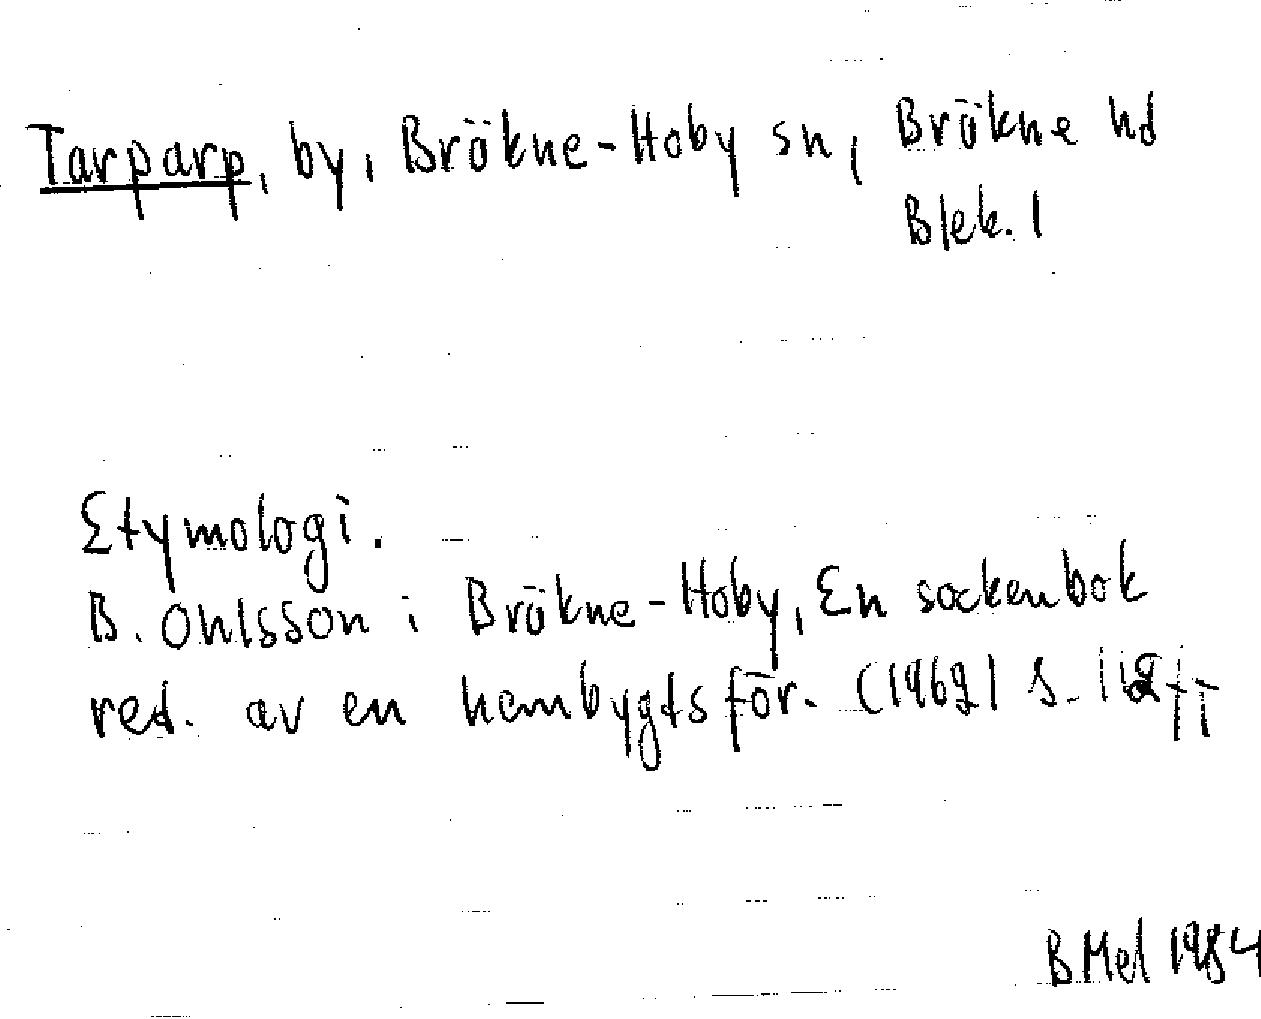 Tarparp, by, Bräkne-Hoby sn, Bräkne hd
Blek. l
Etymologi.
B. Ohlsson i Bräkne-Hoby, En sockenbok
red. av en hembygtsför. (1969) s. 112 ff
B Mel 1984